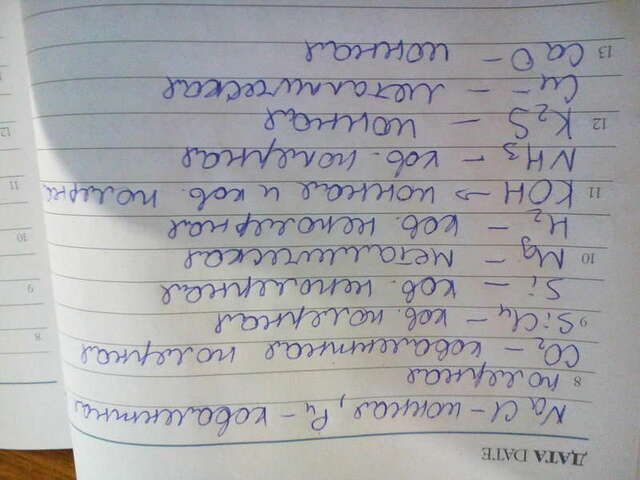 ДАТА DATE
NaCl – ионная, P₄ – ковалентная
8 полерная
CO₂ – ковалентная полерная
9 SiCl₄ – ков. полерная
Si – ков. неполерная
10 Mg – металлическая
H₂ – ков. неполерная
11 KOH → ионная и ков. полерна
NH₃ – ков. полерная
12 K₂S – ионная
Cu – металлическая
13 CaO – ионная
8
9
10
11
12